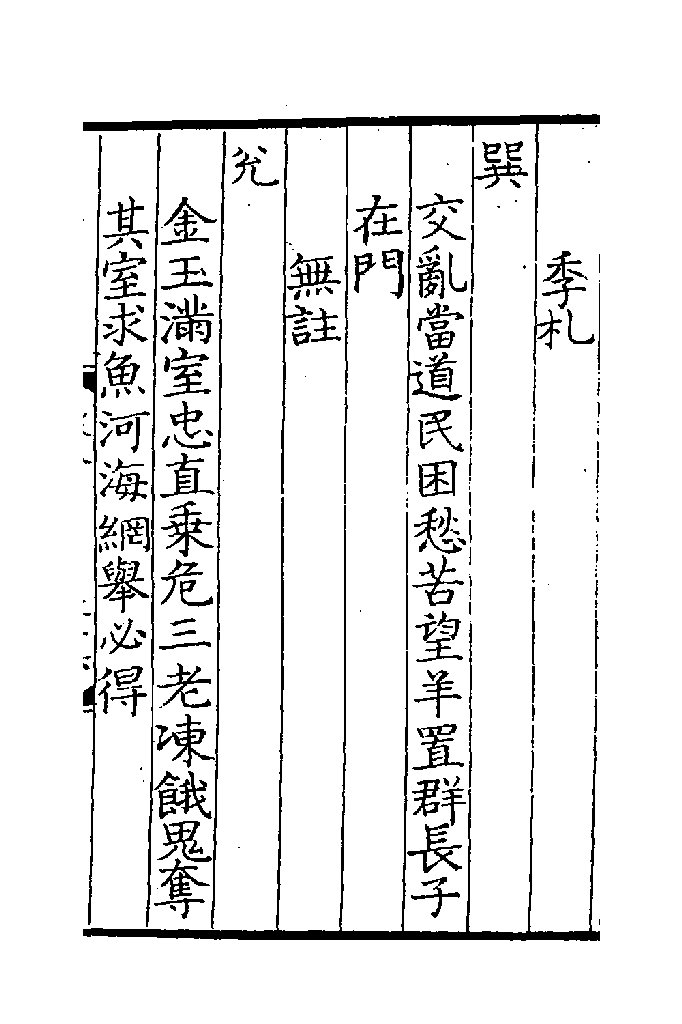 季札
巽
交亂當道民困愁苦望羊置群長子
在門
無註
兊
金玉滿室忠直乗危三老凍餓鬼奪
其室求魚河海網舉必得